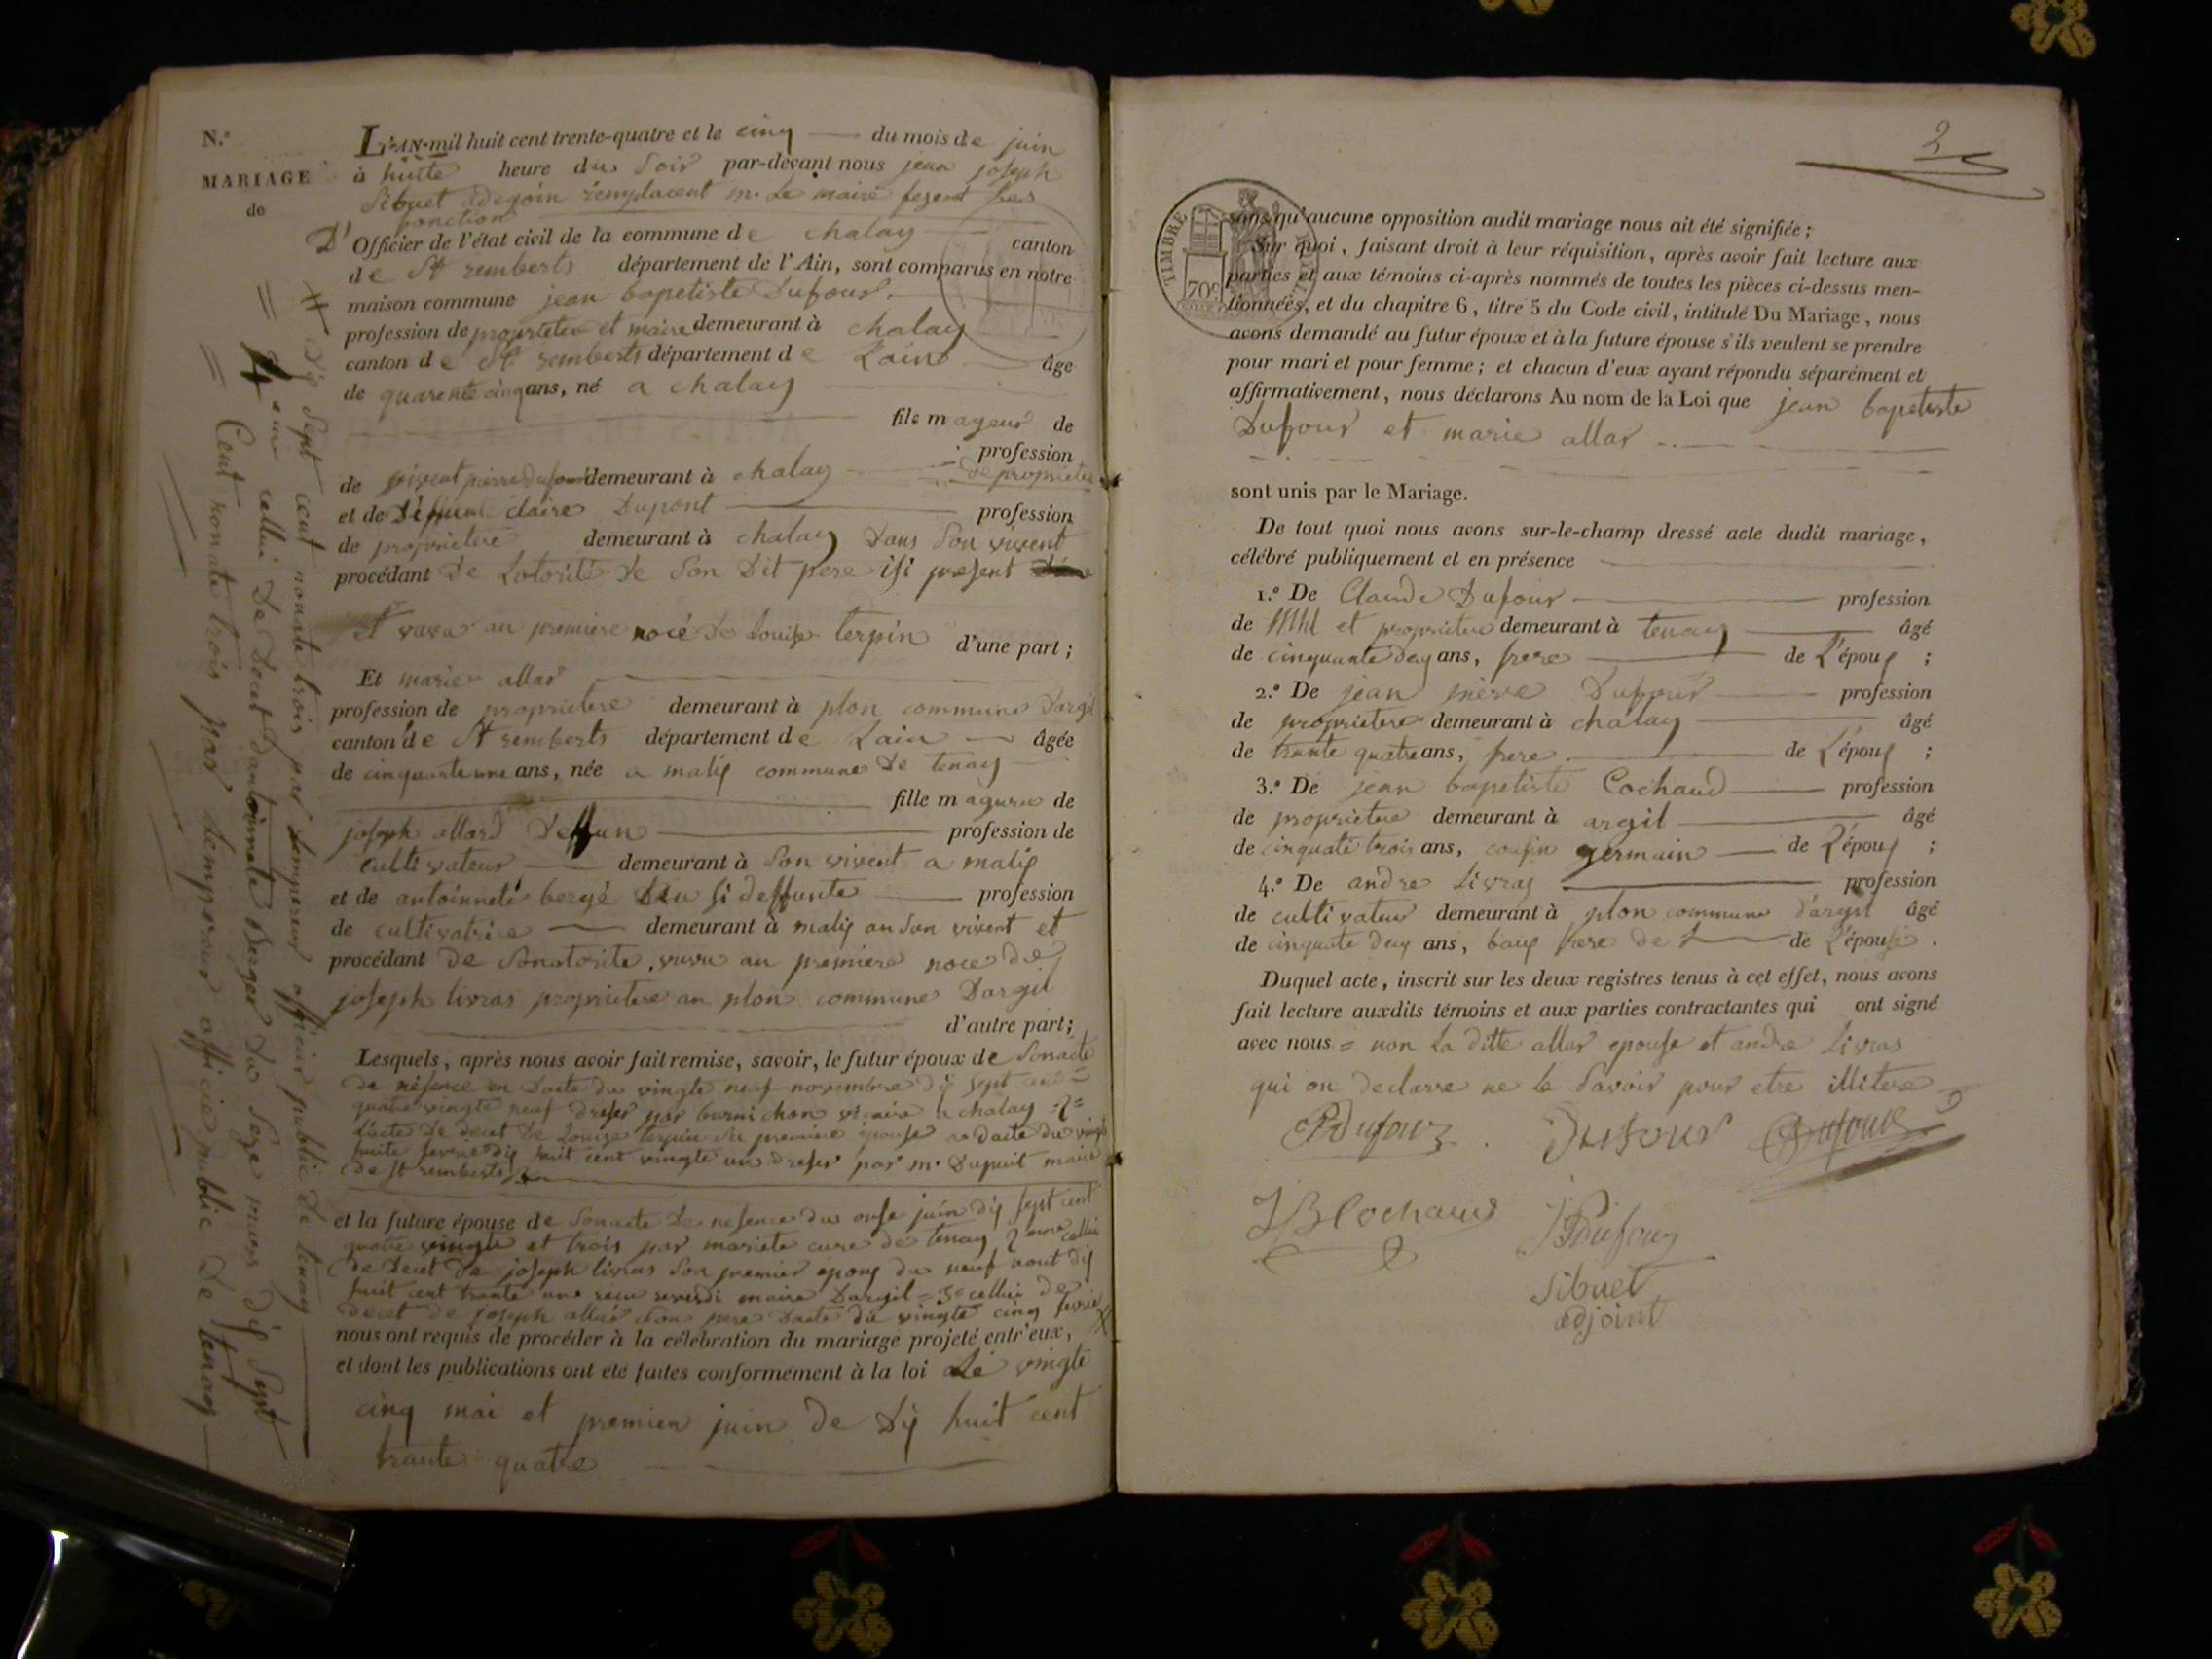 N.º
MARIAGE
de
L'AN mil huit cent trente-quatre et le cinq du mois de juin
à huite heure du Soir par-devant nous jean joseph
Sibuet adegoin remplacent m. Le maire fesent ses
fonction
D' Officier de l'état civil de la commune de chalay canton
de St remberts département de l'Ain, sont comparus en notre
maison commune jean bapetiste Dufour
profession de proprietere et maire demeurant à chalay
canton de St remberts département de Lain âge
de quarente cinq ans, né a chalay
fils mageur de
profession
de vivent pierre dufour demeurant à chalay de proprietere
et de Déffunte claire Dupont profession
de proprietere demeurant à chalay Dans Son vivent
procédant de Lotorité de Son Dit pere isi present
et vavar au premiere nocé de Louise terpin d'une part ;
Et marie allar
profession de proprietere demeurant à plon commune Dargil
canton de St remberts département de Lain âgée
de cinquante une ans, née a malix commune de tenay
fille magure de
joseph allard Deffun profession de
cultivateur demeurant à Son vivent a malix
et de antoinneté bergé deffunte profession
de cultivatrice demeurant à malix an Son vivent et
procédant de Sonotorite, vuvu au premiere noce de
joseph livras proprietere au plon commune Dargil
d'autre part ;
Lesquels, après nous avoir fait remise, savoir, le futur époux de Sonacte
de nésence en Daete du vingte neuf novembre dix Sept cent
quatre vingte neuf dreser par burnichon vicaire a chalay =2=
l'acte de decet de Louise terpin Sa premiere épouse en daete du vingte
huite fevrie dix huit cent vingte un dreser par m. Dupuit maire
de St remberts
et la future épouse de Sonacte de nesence du onse juin dix sept cent
quatre vingte et trois par mariete cure de tenay 2eme cellui
de decet de joseph livras Son premier epoux du neuf aout dix
huit cent trante une maire Dargil =3= cellui de
decet de joseph allar Son pere Daete du vingte cinq fevrie #
nous ont requis de procéder à la célébration du mariage projeté entr'eux,
et dont les publications ont été faites conformément à la loi Le vingte
cinq mai et premier juin de Dix huit cent
trante quatre
# Dix Sept cent nonate trois par Lempereur afficier public de tenay
= 4eme cellui De Decet dantoinnete Berger du Seze mars dix Sept
= Cent nonate trois par Lempereur afficie public de tenay
2
TIMBRE ROYAL
70c
sans qu'aucune opposition audit mariage nous ait été signifiée ;
Sur quoi, faisant droit à leur réquisition, après avoir fait lecture aux
parties et aux témoins ci-après nommés de toutes les pièces ci-dessus men-
tionnées, et du chapitre 6, titre 5 du Code civil, intitulé Du Mariage, nous
avons demandé au futur époux et à la future épouse s'ils veulent se prendre
pour mari et pour femme ; et chacun d'eux ayant répondu séparément et
affirmativement, nous déclarons Au nom de la Loi que jean bapetiste
Dufour et marie allar
sont unis par le Mariage.
De tout quoi nous avons sur-le-champ dressé acte dudit mariage,
célébré publiquement et en présence
1.º De Claude Dufour profession
de et proprietere demeurant à tenay âgé
de cinquante dex ans, frere de L'époux ;
2.º De jean pière Dufour profession
de proprietere demeurant à chalay âgé
de trante quatre ans, frere de L'époux ;
3.º De jean bapetiste Cochaud profession
de proprietere demeurant à argil âgé
de cinquate trois ans, cousin germain de L'époux ;
4.º De andre Livras profession
de cultivateur demeurant à plon commune d'argil âgé
de cinquate dex ans, baux frere de L de L'épouse .
Duquel acte, inscrit sur les deux registres tenus à cet effet, nous avons
fait lecture auxdits témoins et aux parties contractantes qui ont signé
avec nous = non La ditte allar epouse et andre Livras
qui on declarre ne le Savoir pour etre illitere
Dufour Dufour Dufour
JB Cochaud JPDufour
Sibuet
adjoint